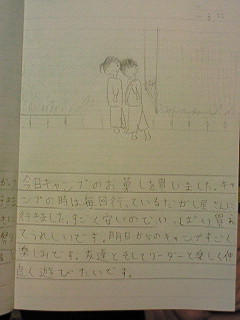 今日キャンプのお菓しを買いました。キャ
ンプの時は毎回行っているだがし屋さんに
行きました。すごく安いのでいっぱい買え
てうれしいです。明日からのキャンプすごく
楽しみです。友達とそしてリーダーと楽しく仲
良く遊びたいです。